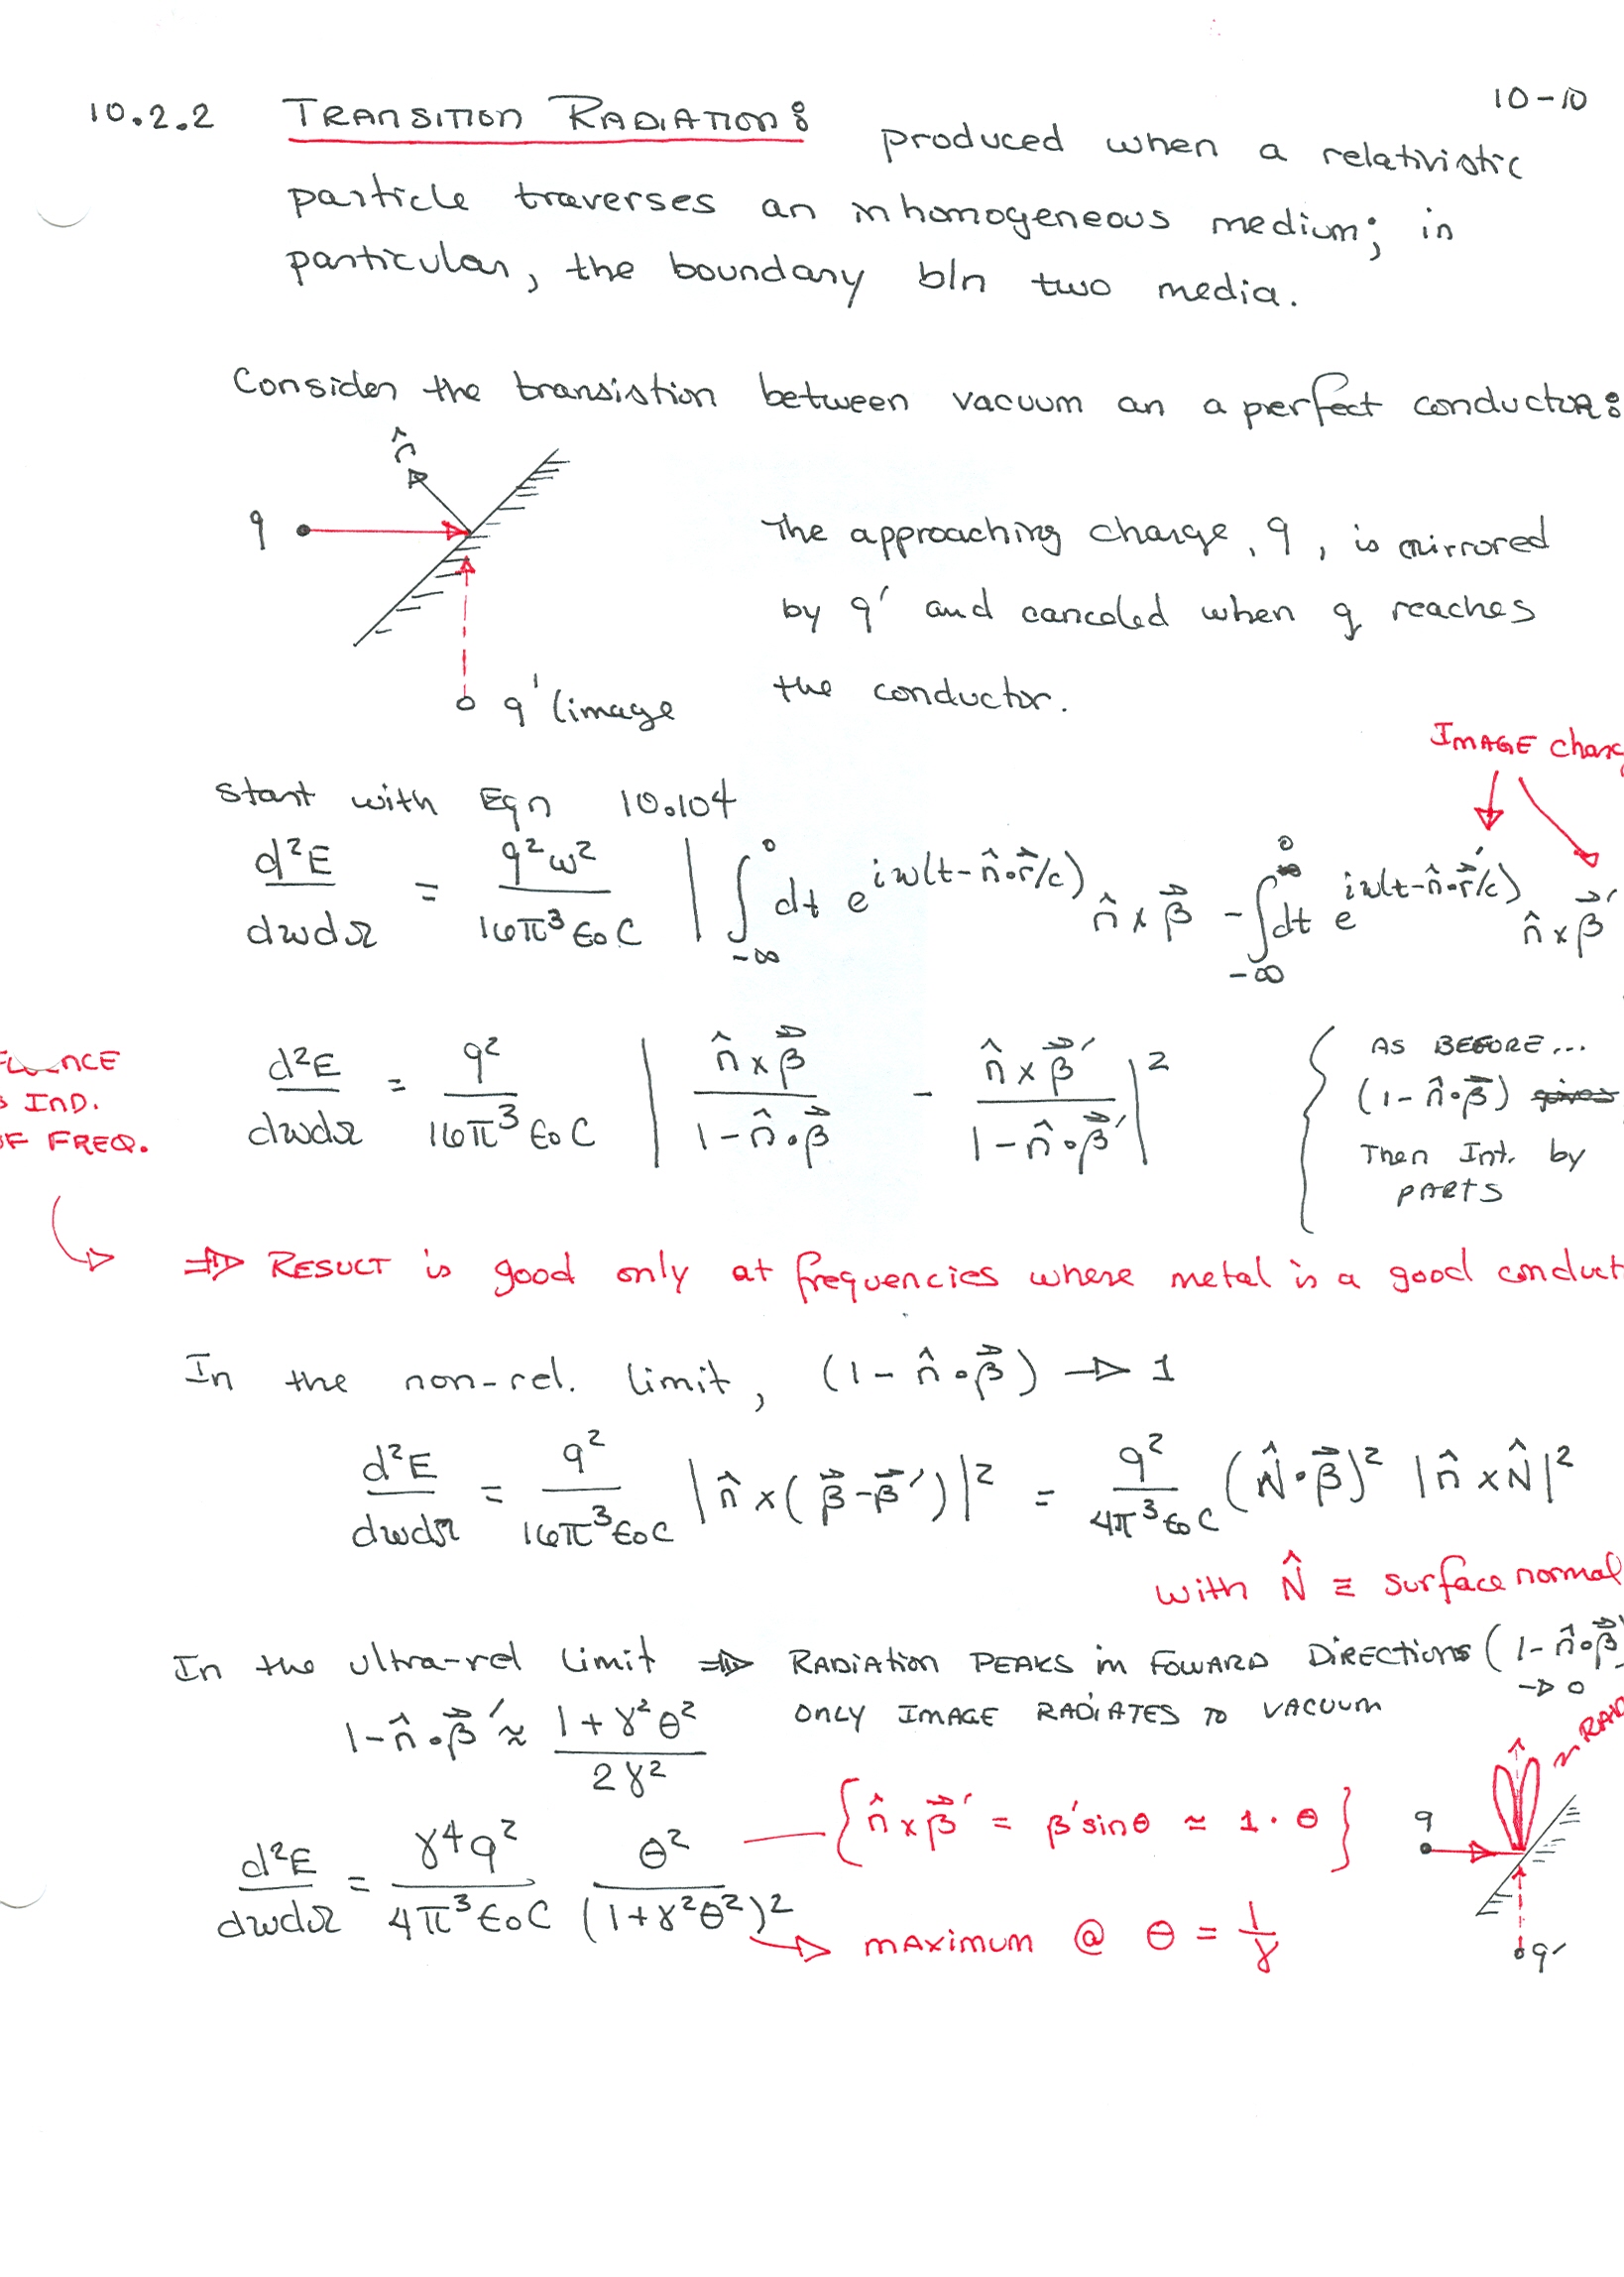 10-10
10.2.2 TRANSITION RADIATION: produced when a relativistic
particle traverses an inhomogeneous medium; in
particular, the boundary b/n two media.
Consider the transistion between vacuum an a perfect conductor:
n̂
q
The approaching charge, q, is mirrored
by q' and canceled when q reaches
the conductor.
q' (image
IMAGE charg
start with Eqn 10.104
d²E/dωdΩ = q²ω²/16π³ε₀c | ∫_{-∞}^{0} dt e^{iω(t-n̂·r⃗/c)} n̂ x β⃗ - ∫_{-∞}^{0} dt e^{iω(t-n̂·r⃗'/c)} n̂ x β⃗'
NCE
IND.
OF FREQ.
d²E/dωdΩ = q²/16π³ε₀c | n̂ x β⃗/1-n̂·β⃗ - n̂ x β⃗'/1-n̂·β⃗' |²
AS BEFORE...
(1-n̂·β⃗) gives
Then Int. by
PARTS
⇒ RESULT is good only at frequencies where metal is a good conduct
In the non-rel. limit, (1-n̂·β⃗) → 1
d²E/dωdΩ = q²/16π³ε₀c |n̂ x (β⃗-β⃗')|² = q²/4π³ε₀c (N̂·β⃗)² |n̂ x N̂|²
with N̂ ≡ surface normal
In the ultra-rel limit ⇒ RADIATION PEAKS in FOWARD DIRECTIONS (1-n̂·β⃗)
→ 0
1-n̂·β⃗' ≈ 1+γ²θ²/2γ²
ONLY IMAGE RADIATES TO VACUUM
RAD
d²E/dωdΩ = γ⁴q²/4π³ε₀c θ²/(1+γ²θ²)²
{n̂ x β⃗' = β' sinθ ≈ 1·θ}
q
→ MAXIMUM @ θ = 1/γ
q'